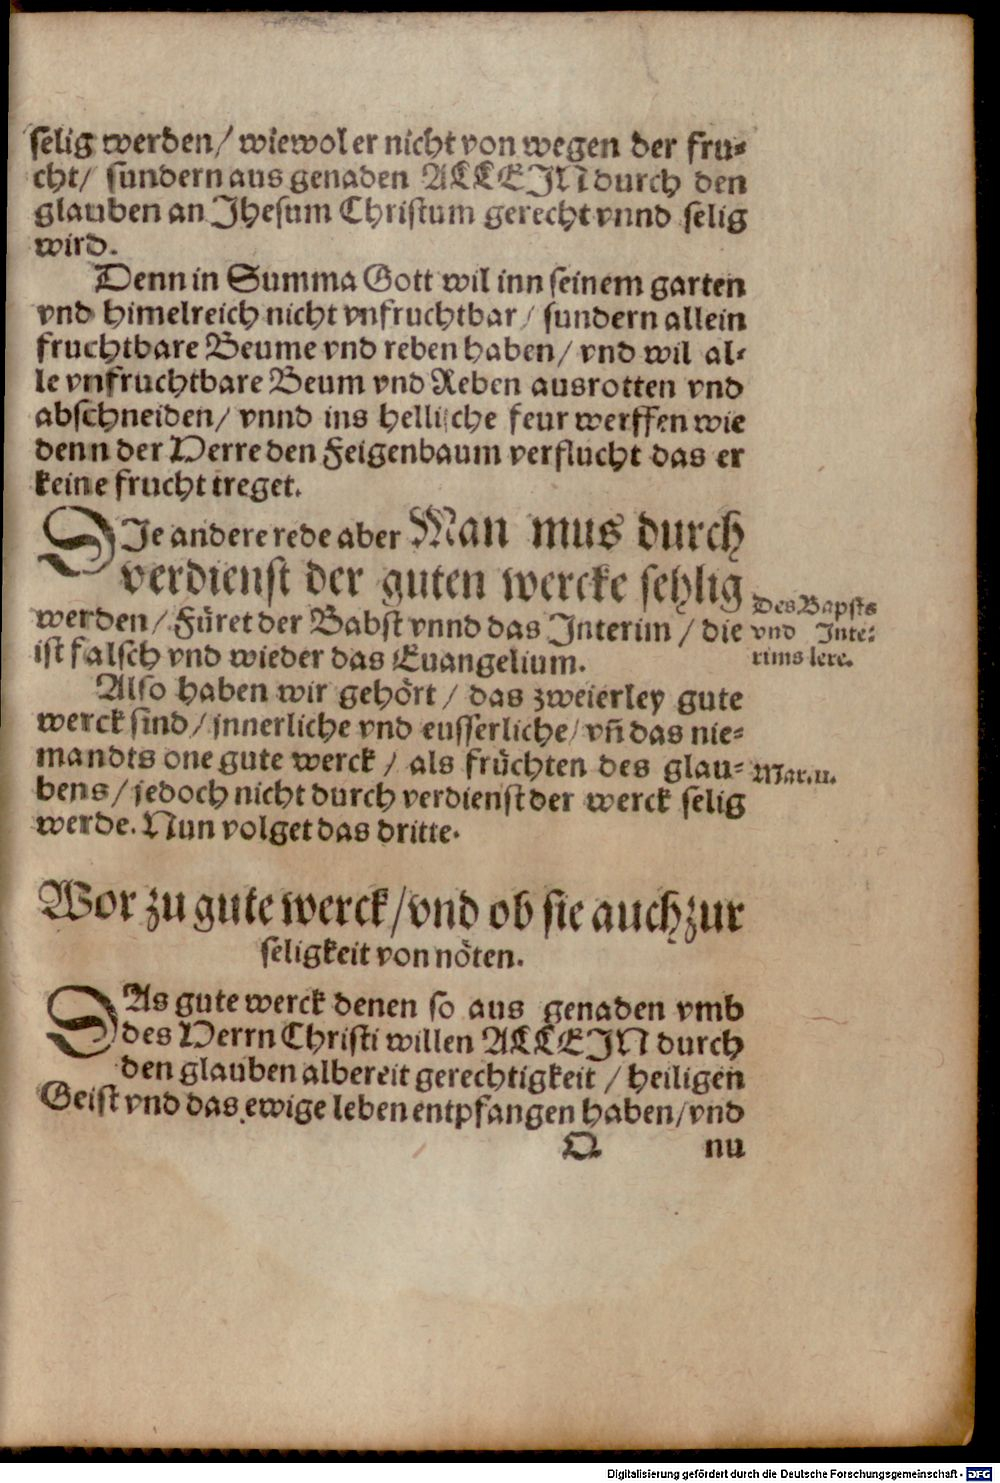 selig werden/ wiewol er nicht von wegen der fru-
cht/ sundern aus genaden ALLEIN durch den
glauben an Jhesum Christum gerecht vnnd selig
wird.
Denn in Summa Gott wil inn seinem garten
vnd himelreich nicht vnfruchtbar/ sundern allein
fruchtbare Beume vnd reben haben/ vnd wil al-
le vnfruchtbare Beum vnd Reben ausrotten vnd
abschneiden/ vnnd ins hellische feur werffen wie
denn der Herre den Feigenbaum verflucht das er
keine frucht treget.
DIe andere rede aber Man mus durch
verdienst der guten wercke sehlig
werden/ Füret der Babst vnnd das Interim/ die
ist falsch vnd wieder das Euangelium.
Des Bapsts
vnd Inte-
rims lere.
Also haben wir gehört/ das zweierley gute
werck sind/ jnnerliche vnd eusserliche/ vñ das nie-
mandts one gute werck/ als früchten des glau-
bens/ jedoch nicht durch verdienst der werck selig
werde. Nun volget das dritte.
Mar. 11.
Wor zu gute werck/ vnd ob sie auch zur
seligkeit von nöten.
DAs gute werck denen so aus genaden vmb
des Herrn Christi willen ALLEIN durch
den glauben albereit gerechtigkeit/ heiligen
Geist vnd das ewige leben entpfangen haben/ vnd
D nu
Digitalisierung gefördert durch die Deutsche Forschungsgemeinschaft - DFG